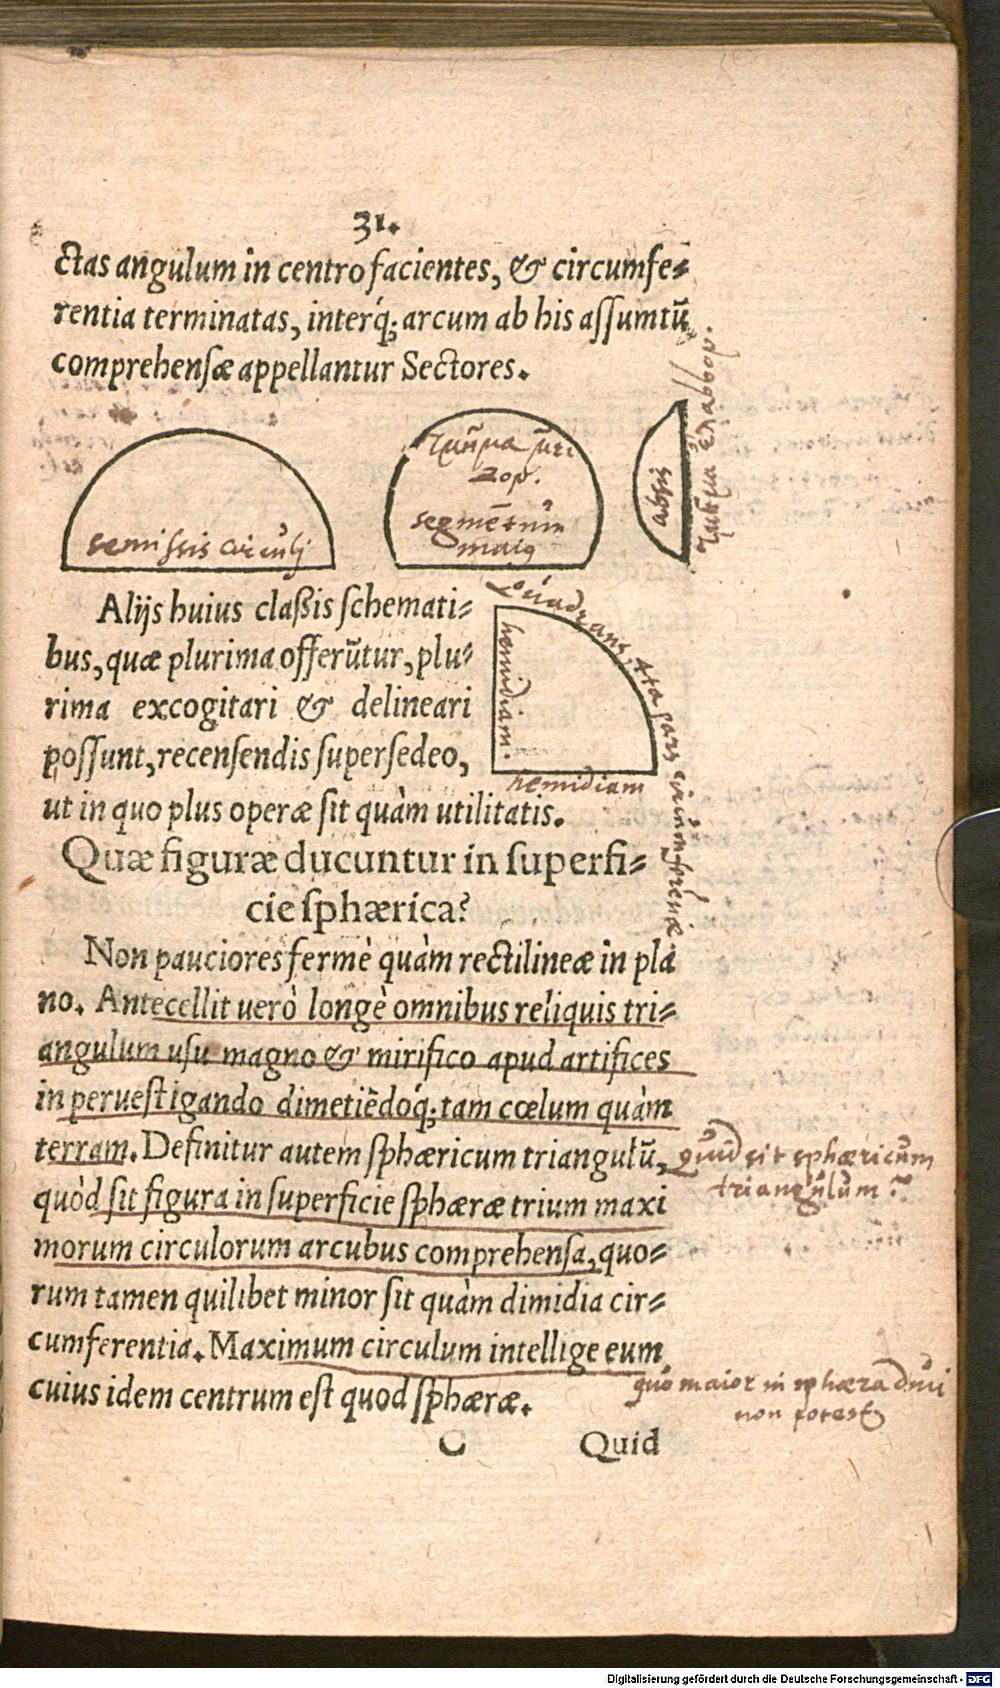 31.
ctas angulum in centro facientes, & circumfe-
rentia terminatas, interq́; arcum ab his aſſumtũ
comprehenſæ appellantur Sectores.
semiſsis circuli
segmẽtum
maiꝰ
absis
Quadrans, 4ta pars circũmferẽtiæ.
hemidiam.
hemidiam
Alijs huius claßis ſchemati-
bus, quæ plurima offerũtur, plu-
rima excogitari & delineari
poſſunt, recenſendis ſuperſedeo,
ut in quo plus operæ ſit quàm utilitatis.
Quæ figuræ ducuntur in ſuperfi-
cie ſphærica?
Non pauciores fermè quàm rectilineæ in pla
no. Antecellit uerò longè omnibus reliquis tri-
angulum uſu magno & mirifico apud artifices
in perueſtigando dimetiẽdoq́; tam cœlum quàm
terram. Definitur autem ſphæricum triangulũ,
quid sit sphæricum
triangulum?
quòd ſit figura in ſuperficie ſphæræ trium maxi
morum circulorum arcubus comprehenſa, quo-
rum tamen quilibet minor ſit quàm dimidia cir-
cumferentia. Maximum circulum intellige eum,
cuius idem centrum eſt quod ſphæræ.
quo maior in sphæra duci
non potest
C Quid
Digitalisierung gefördert durch die Deutsche Forschungsgemeinschaft - DFG